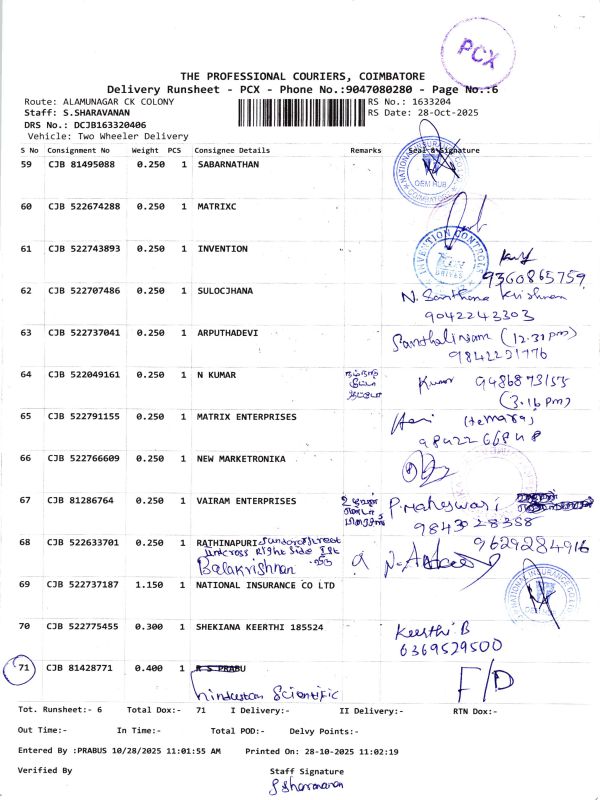 PCX
THE PROFESSIONAL COURIERS, COIMBATORE
Delivery Runsheet - PCX - Phone No.:9047080280 - Page No.:6
Route: ALAMUNAGAR CK COLONY RS No.: 1633204
Staff: S.SHARAVANAN RS Date: 28-Oct-2025
DRS No.: DCJB163320406
Vehicle: Two Wheeler Delivery
S No Consignment No Weight PCS Consignee Details Remarks Seal & Signature
59 CJB 81495088 0.250 1 SABARNATHAN
60 CJB 522674288 0.250 1 MATRIXC
61 CJB 522743893 0.250 1 INVENTION
INVENTION CONTROL DRIVES
9360865759
62 CJB 522707486 0.250 1 SULOCJHANA N. Santhana Krishnan
9042242303
63 CJB 522737041 0.250 1 ARPUTHADEVI (12.31 pm)
9842231776
64 CJB 522049161 0.250 1 N KUMAR Kumar 9486873153
(3.16 pm)
65 CJB 522791155 0.250 1 MATRIX ENTERPRISES
9842266848
66 CJB 522766609 0.250 1 NEW MARKETRONIKA
67 CJB 81286764 0.250 1 VAIRAM ENTERPRISES P. maheswari
9843028388
68 CJB 522633701 0.250 1 RATHINAPURI 9629284916
Right side
Balakrishnan
69 CJB 522737187 1.150 1 NATIONAL INSURANCE CO LTD
70 CJB 522775455 0.300 1 SHEKIANA KEERTHI 185524 Keerthi B
6369529500
71 CJB 81428771 0.400 1 R S PRABU F/D
hindustan Scientific
Tot. Runsheet:- 6 Total Dox:- 71 I Delivery:- II Delivery:- RTN Dox:-
Out Time:- In Time:- Total POD:- Delvy Points:-
Entered By :PRABUS 10/28/2025 11:01:55 AM Printed On: 28-10-2025 11:02:19
Verified By Staff Signature
S Sharavanan